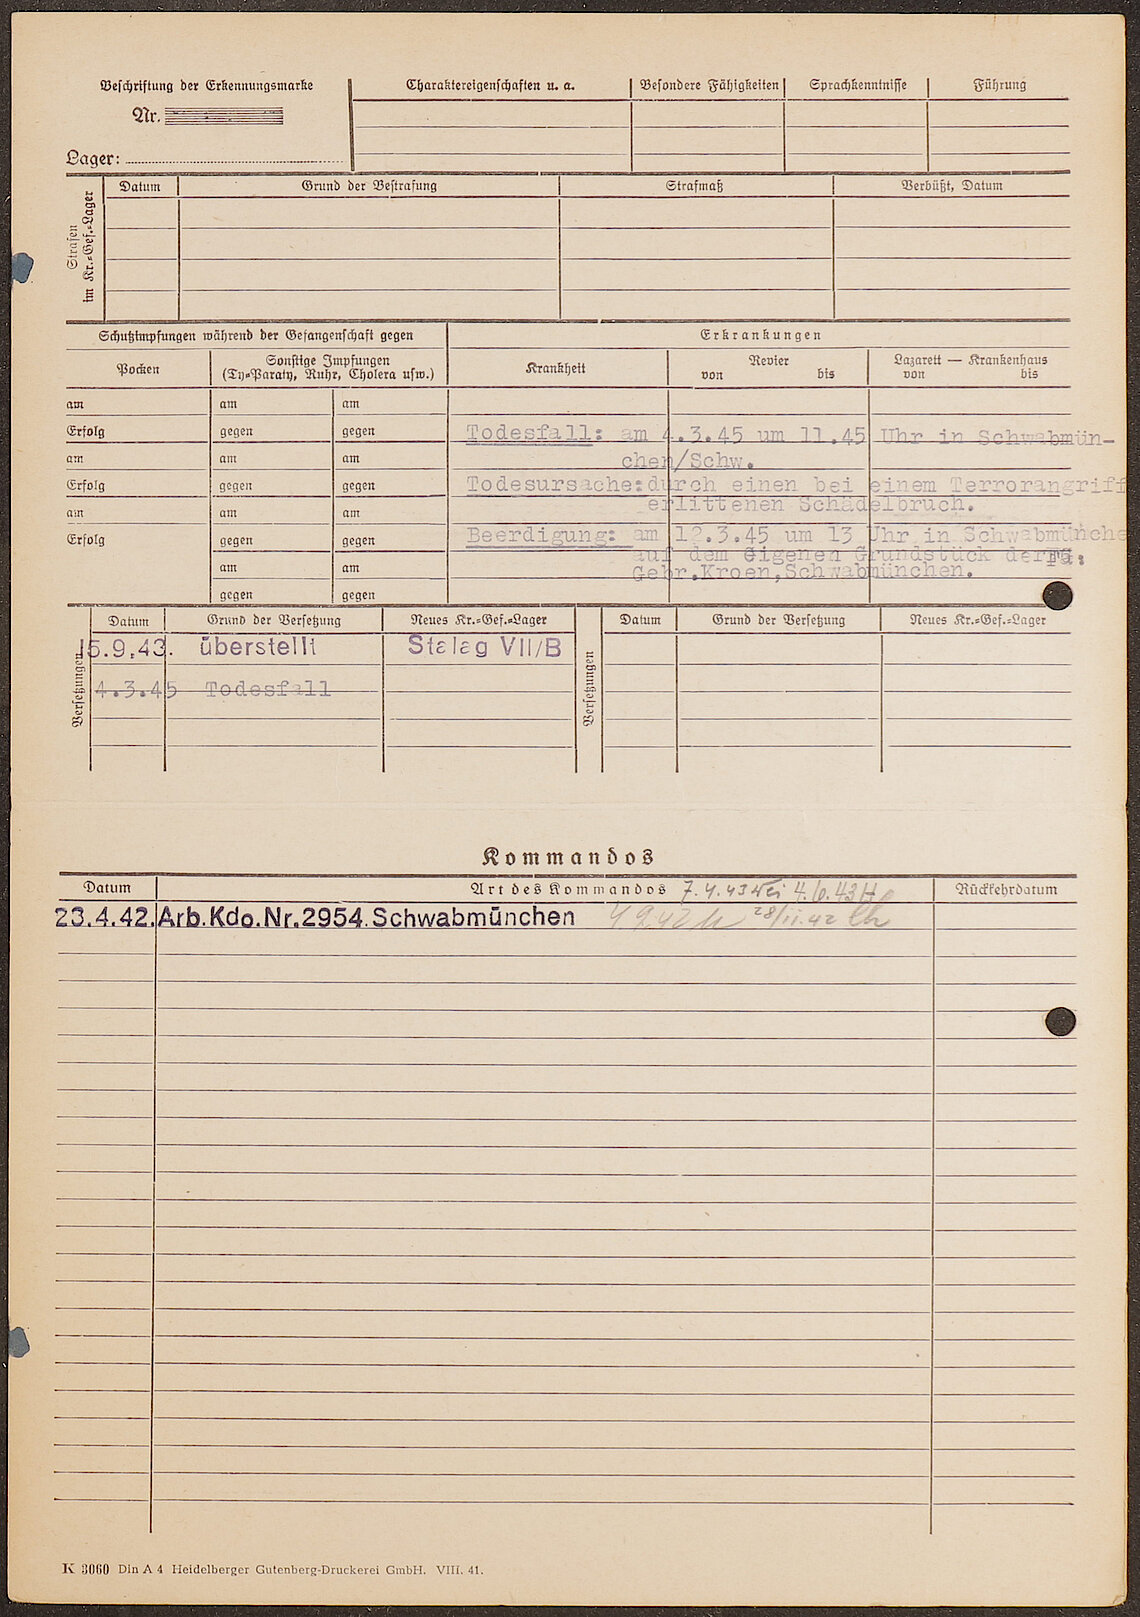 Beschriftung der Erkennungsmarke
Nr.
Lager:
Charaktereigenschaften u. a.
Besondere Fähigkeiten
Sprachkenntnisse
Führung
Strafen
im Kr.=Gef.=Lager
Datum
Grund der Bestrafung
Strafmaß
Verbüßt, Datum
Schutzimpfungen während der Gefangenschaft gegen
Erkrankungen
Pocken
Sonstige Impfungen
(Ty=Paraty, Ruhr, Cholera usw.)
Krankheit
Revier
von bis
Lazarett — Krankenhaus
von bis
am am am
Erfolg gegen gegen
am am am
Erfolg gegen gegen
am am am
Erfolg gegen gegen
am am
gegen gegen
Todesfall: am 4.3.45 um 11.45 Uhr in Schwabmün-
chen/Schw.
Todesursache:durch einen bei einem Terrorangriff
erlittenen Schädelbruch.
Beerdigung: am 12.3.45 um 13 Uhr in Schwabmünche
auf dem eigenen Grundstück der Fa.
Gebr.Kroen,Schwabmünchen.
Versetzungen
Datum Grund der Versetzung Neues Kr.=Gef.=Lager
15.9.43. überstellt Stalag VII/B
4.3.45 Todesfall
Versetzungen
Datum Grund der Versetzung Neues Kr.=Gef.=Lager
Kommandos
Datum Art des Kommandos 7.4.43 4.6.43 Rückkehrdatum
23.4.42. Arb.Kdo.Nr.2954.Schwabmünchen 28/11.42
K 3060 Din A 4 Heidelberger Gutenberg-Druckerei GmbH. VIII. 41.